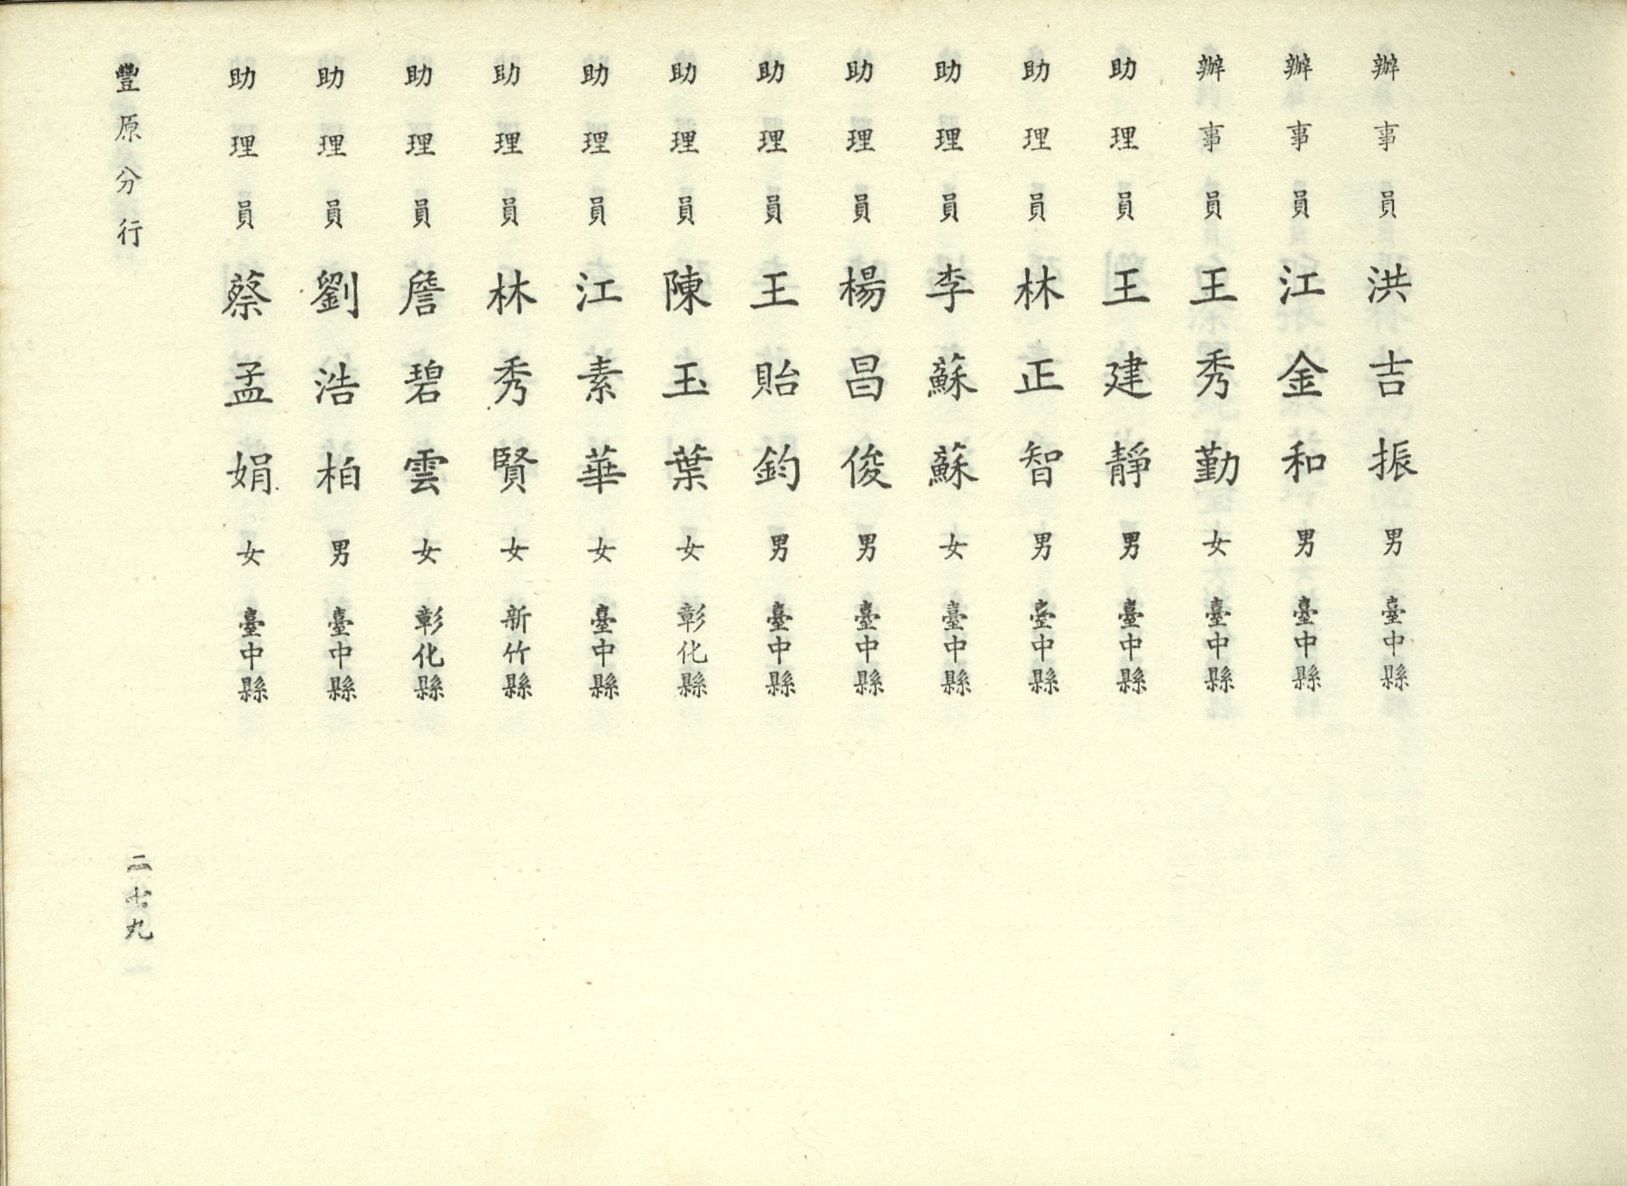 辦事員 洪吉振 男 臺中縣
辦事員 江金和 男 臺中縣
辦事員 王秀勤 女 臺中縣
助理員 王建靜 男 臺中縣
助理員 林正智 男 臺中縣
助理員 李蘇蘇 女 臺中縣
助理員 楊昌俊 男 臺中縣
助理員 王貽鈞 男 臺中縣
助理員 陳玉葉 女 彰化縣
助理員 江素華 女 臺中縣
助理員 林秀賢 女 新竹縣
助理員 詹碧雲 女 彰化縣
助理員 劉浩柏 男 臺中縣
助理員 蔡孟娟 女 臺中縣
豐原分行
二七九